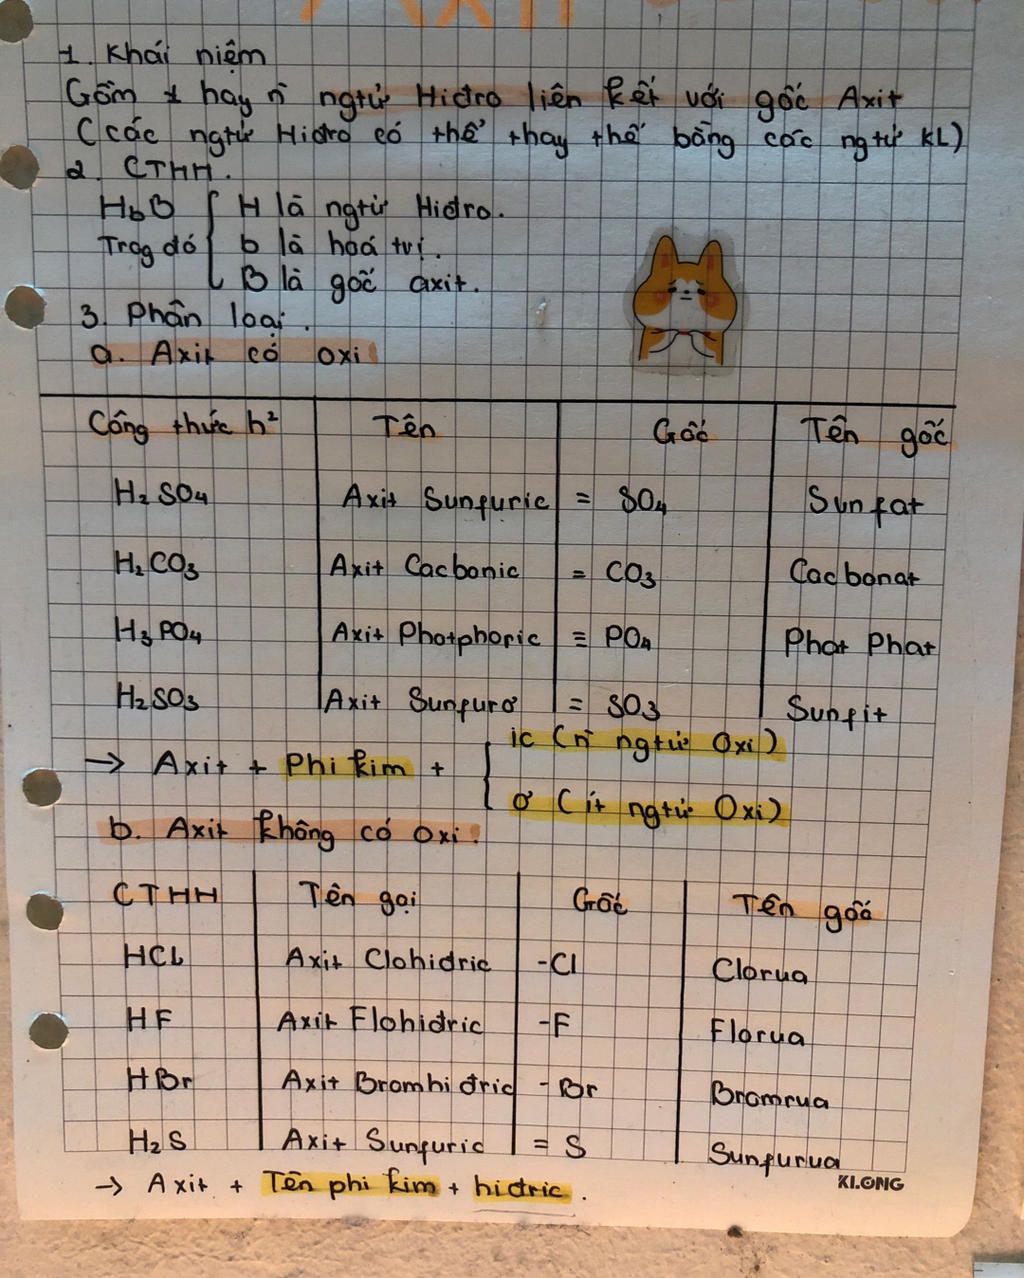 Axit
1. Khái niệm
Gồm 1 hay n ngtử Hiđro liên kết với gốc Axit
(các ngtử Hiđro có thể thay thế bằng các ngtử KL)
2. CTHH.
HbB { H là ngtử Hiđro.
Trog đó b là hoá trị.
B là gốc axit.
3. Phân loại.
a. Axit có oxi
Công thức h² Tên Gốc Tên gốc
H₂SO₄ Axit Sunfuric = SO₄ Sunfat
H₂CO₃ Axit Cacbonic = CO₃ Cacbonat
H₃PO₄ Axit Photphoric ≡ PO₄ Phot Phat
H₂SO₃ Axit Sunfurơ = SO₃ Sunfit
ic (n ngtử Oxi)
→ Axit + Phi kim + {
ơ (ít ngtử Oxi)
b. Axit không có oxi.
CTHH Tên gọi Gốc Tên gốc
HCl Axit Clohiđric -Cl Clorua
HF Axit Flohiđric -F Florua
HBr Axit Bromhiđric -Br Bromrua
H₂S Axit Sunfuric = S Sunfurua
→ Axit + Tên phi kim + hiđric.
KLONG